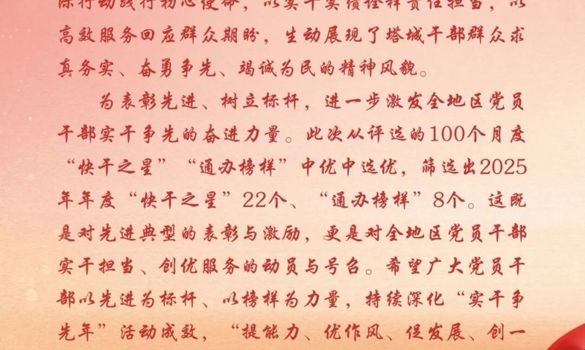 际行动践行初心使命，以实干实绩诠释责任担当，以
高效服务回应群众期盼，生动展现了塔城干部群众求
真务实、奋勇争先、竭诚为民的精神风貌。
为表彰先进、树立标杆，进一步激发全地区党员
干部实干争先的奋进力量。此次从评选的100个月度
“快干之星”“通办榜样”中优中选优，筛选出2025
年年度“快干之星”22个、“通办榜样”8个。这既
是对先进典型的表彰与激励，更是对全地区党员干部
实干担当、创优服务的动员与号召。希望广大党员干
部以先进为标杆、以榜样为力量，持续深化“实干争
先年”活动成效，“提能力、优作风、促发展、创一